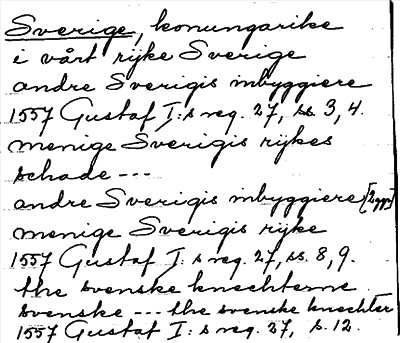 Sverige, konungarike
i vårt rijke Sverige
andre Sverigis inbyggiere
1557 Gustaf I:s reg. 27, ss. 3, 4.
menige Sverigis rijkes
schade ---
andre Sverigis inbyggiere [2 ggr]
menige Sverigis rijke
1557 Gustaf I:s reg. 27, ss. 8, 9.
the svenske knechterne
svenske --- the svenske knechter
1557 Gustaf I:s reg. 27, s. 12.